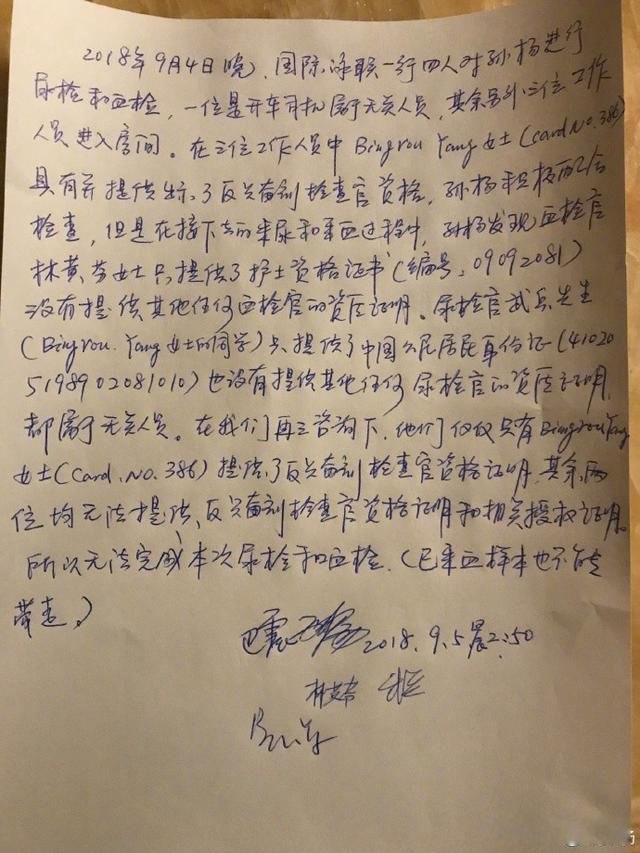 2018年9月4日晚，国际泳联一行四人对孙杨进行
尿检和血检，一位是开车司机属于无关人员，其余另外三位工作
人员进入房间。在三位工作人员中Bingrou Yang女士(Card No.386)
具有并提供出示了反兴奋剂检查官资格，孙杨积极配合
检查，但是在接下去的采尿和采血过程中，孙杨发现血检官
林 女士只提供了护士资格证书（编号：09092081）
没有提供其他任何血检官的资质证明。尿检官 先生
（Bingrou.Yang女士的同学）只提供了中国公民居民身份证（41020
5198902081010）也没有提供其他任何尿检官的资质证明，
都属于无关人员。在我们再三咨询下，他们仅仅只有Bingrou Yang
女士(Card.No.386)提供了反兴奋剂检查官资格证明，其余两
位均无法提供反兴奋剂检查官资格证明和相关授权证明。
所以无法完成本次尿检和血检.（已采血样本也不能
带走。）
2018.9.5晨2:50